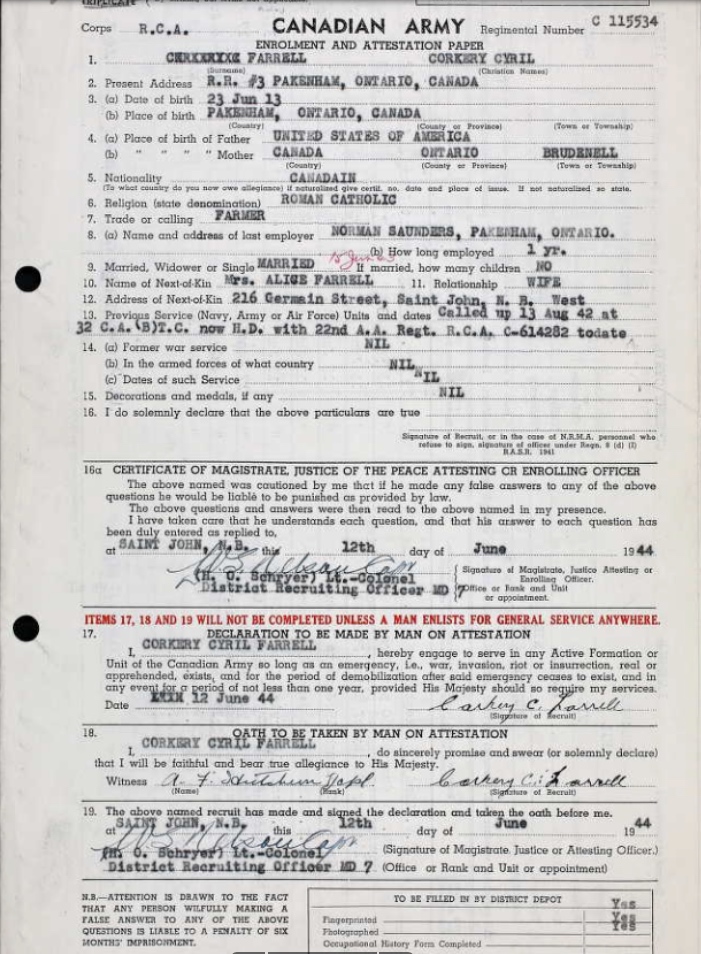 TRIPLICATE
Corps R.C.A. CANADIAN ARMY Regimental Number C 115534
ENROLMENT AND ATTESTATION PAPER
1. FARRELL CORKERY CYRIL
(Surname) (Christian Names)
2. Present Address R.R. #3 PAKENHAM, ONTARIO, CANADA
3. (a) Date of birth 23 Jun 13
(b) Place of birth PAKENHAM, ONTARIO, CANADA
(Country) (County or Province) (Town or Township)
4. (a) Place of birth of Father UNITED STATES OF AMERICA
(b) " " " " Mother CANADA ONTARIO BRUDENELL
(Country) (County or Province) (Town or Township)
5. Nationality CANADAIN
(To what country do you now owe allegiance) if naturalized give certif. no. date and place of issue. If not naturalized so state.
6. Religion (state denomination) ROMAN CATHOLIC
7. Trade or calling FARMER
8. (a) Name and address of last employer NORMAN SAUNDERS, PAKENHAM, ONTARIO.
(b) How long employed 1 yr.
9. Married, Widower or Single MARRIED If married, how many children NO
10. Name of Next-of-Kin Mrs. ALICE FARRELL 11. Relationship WIFE
12. Address of Next-of-Kin 216 Germain Street, Saint John, N. B. West
13. Previous Service (Navy, Army or Air Force) Units and dates Called up 13 Aug 42 at
32 C.A.(B)T.C. now H.D. with 22nd A.A. Regt. R.C.A. C-614282 todate
14. (a) Former war service NIL
(b) In the armed forces of what country NIL
(c) Dates of such Service NIL
15. Decorations and medals, if any NIL
16. I do solemnly declare that the above particulars are true
Signature of Recruit, or in the case of N.R.M.A. personnel who
refuse to sign, signature of officer under Regn. 8 (d) (1)
R.A.S.R. 1941
16a CERTIFICATE OF MAGISTRATE, JUSTICE OF THE PEACE ATTESTING OR ENROLLING OFFICER
The above named was cautioned by me that if he made any false answers to any of the above
questions he would be liable to be punished as provided by law.
The above questions and answers were then read to the above named in my presence.
I have taken care that he understands each question, and that his answer to each question has
been duly entered as replied to,
at SAINT JOHN, N.B. this 12th day of June 1944
(H. O. Schryer) Lt.-Colonel
District Recruiting Officer MD 7
Signature of Magistrate, Justice Attesting or
Enrolling Officer.
Office or Rank and Unit
or appointment.
ITEMS 17, 18 AND 19 WILL NOT BE COMPLETED UNLESS A MAN ENLISTS FOR GENERAL SERVICE ANYWHERE.
17. DECLARATION TO BE MADE BY MAN ON ATTESTATION
I, CORKERY CYRIL FARRELL, hereby engage to serve in any Active Formation or
Unit of the Canadian Army so long as an emergency, i.e., war, invasion, riot or insurrection, real or
apprehended, exists, and for the period of demobilization after said emergency ceases to exist, and in
any event for a period of not less than one year, provided His Majesty should so require my services.
Date 12 June 44 Corkery C. Farrell
(Signature of Recruit)
18. OATH TO BE TAKEN BY MAN ON ATTESTATION
I, CORKERY CYRIL FARRELL, do sincerely promise and swear (or solemnly declare)
that I will be faithful and bear true allegiance to His Majesty.
Witness A. F. Corkery C. Farrell
(Name) (Rank) (Signature of Recruit)
19. The above named recruit has made and signed the declaration and taken the oath before me.
at SAINT JOHN, N.B. this 12th day of June 1944
(H. O. Schryer) Lt.-Colonel (Signature of Magistrate, Justice or Attesting Officer.)
District Recruiting Officer MD 7 (Office or Rank and Unit or appointment)
N.B.—ATTENTION IS DRAWN TO THE FACT
THAT ANY PERSON WILFULLY MAKING A
FALSE ANSWER TO ANY OF THE ABOVE
QUESTIONS IS LIABLE TO A PENALTY OF SIX
MONTHS' IMPRISONMENT.
TO BE FILLED IN BY DISTRICT DEPOT
Yes
Fingerprinted Yes
Photographed Yes
Occupational History Form Completed